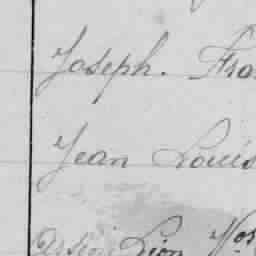 Joseph. Fra
Jean Louis
Léon Nos